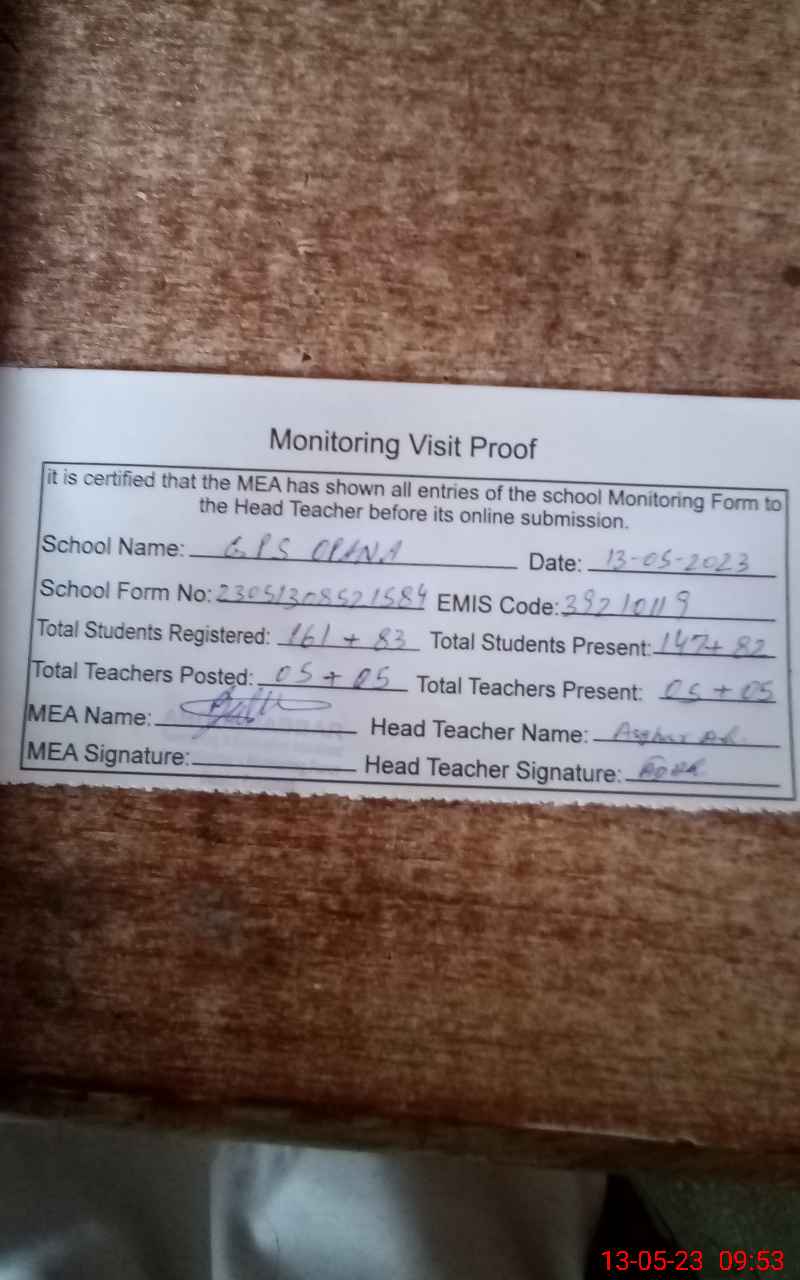 Monitoring Visit Proof
it is certified that the MEA has shown all entries of the school Monitoring Form to
the Head Teacher before its online submission.
School Name: GPS OPANA Date: 13-05-2023
School Form No: 23051308521584 EMIS Code: 39210119
Total Students Registered: 161 + 83 Total Students Present: 147+ 82
Total Teachers Posted: 05 + 05 Total Teachers Present: 05 + 05
MEA Name: Head Teacher Name: Asghar
MEA Signature: Head Teacher Signature:
13-05-23 09:53